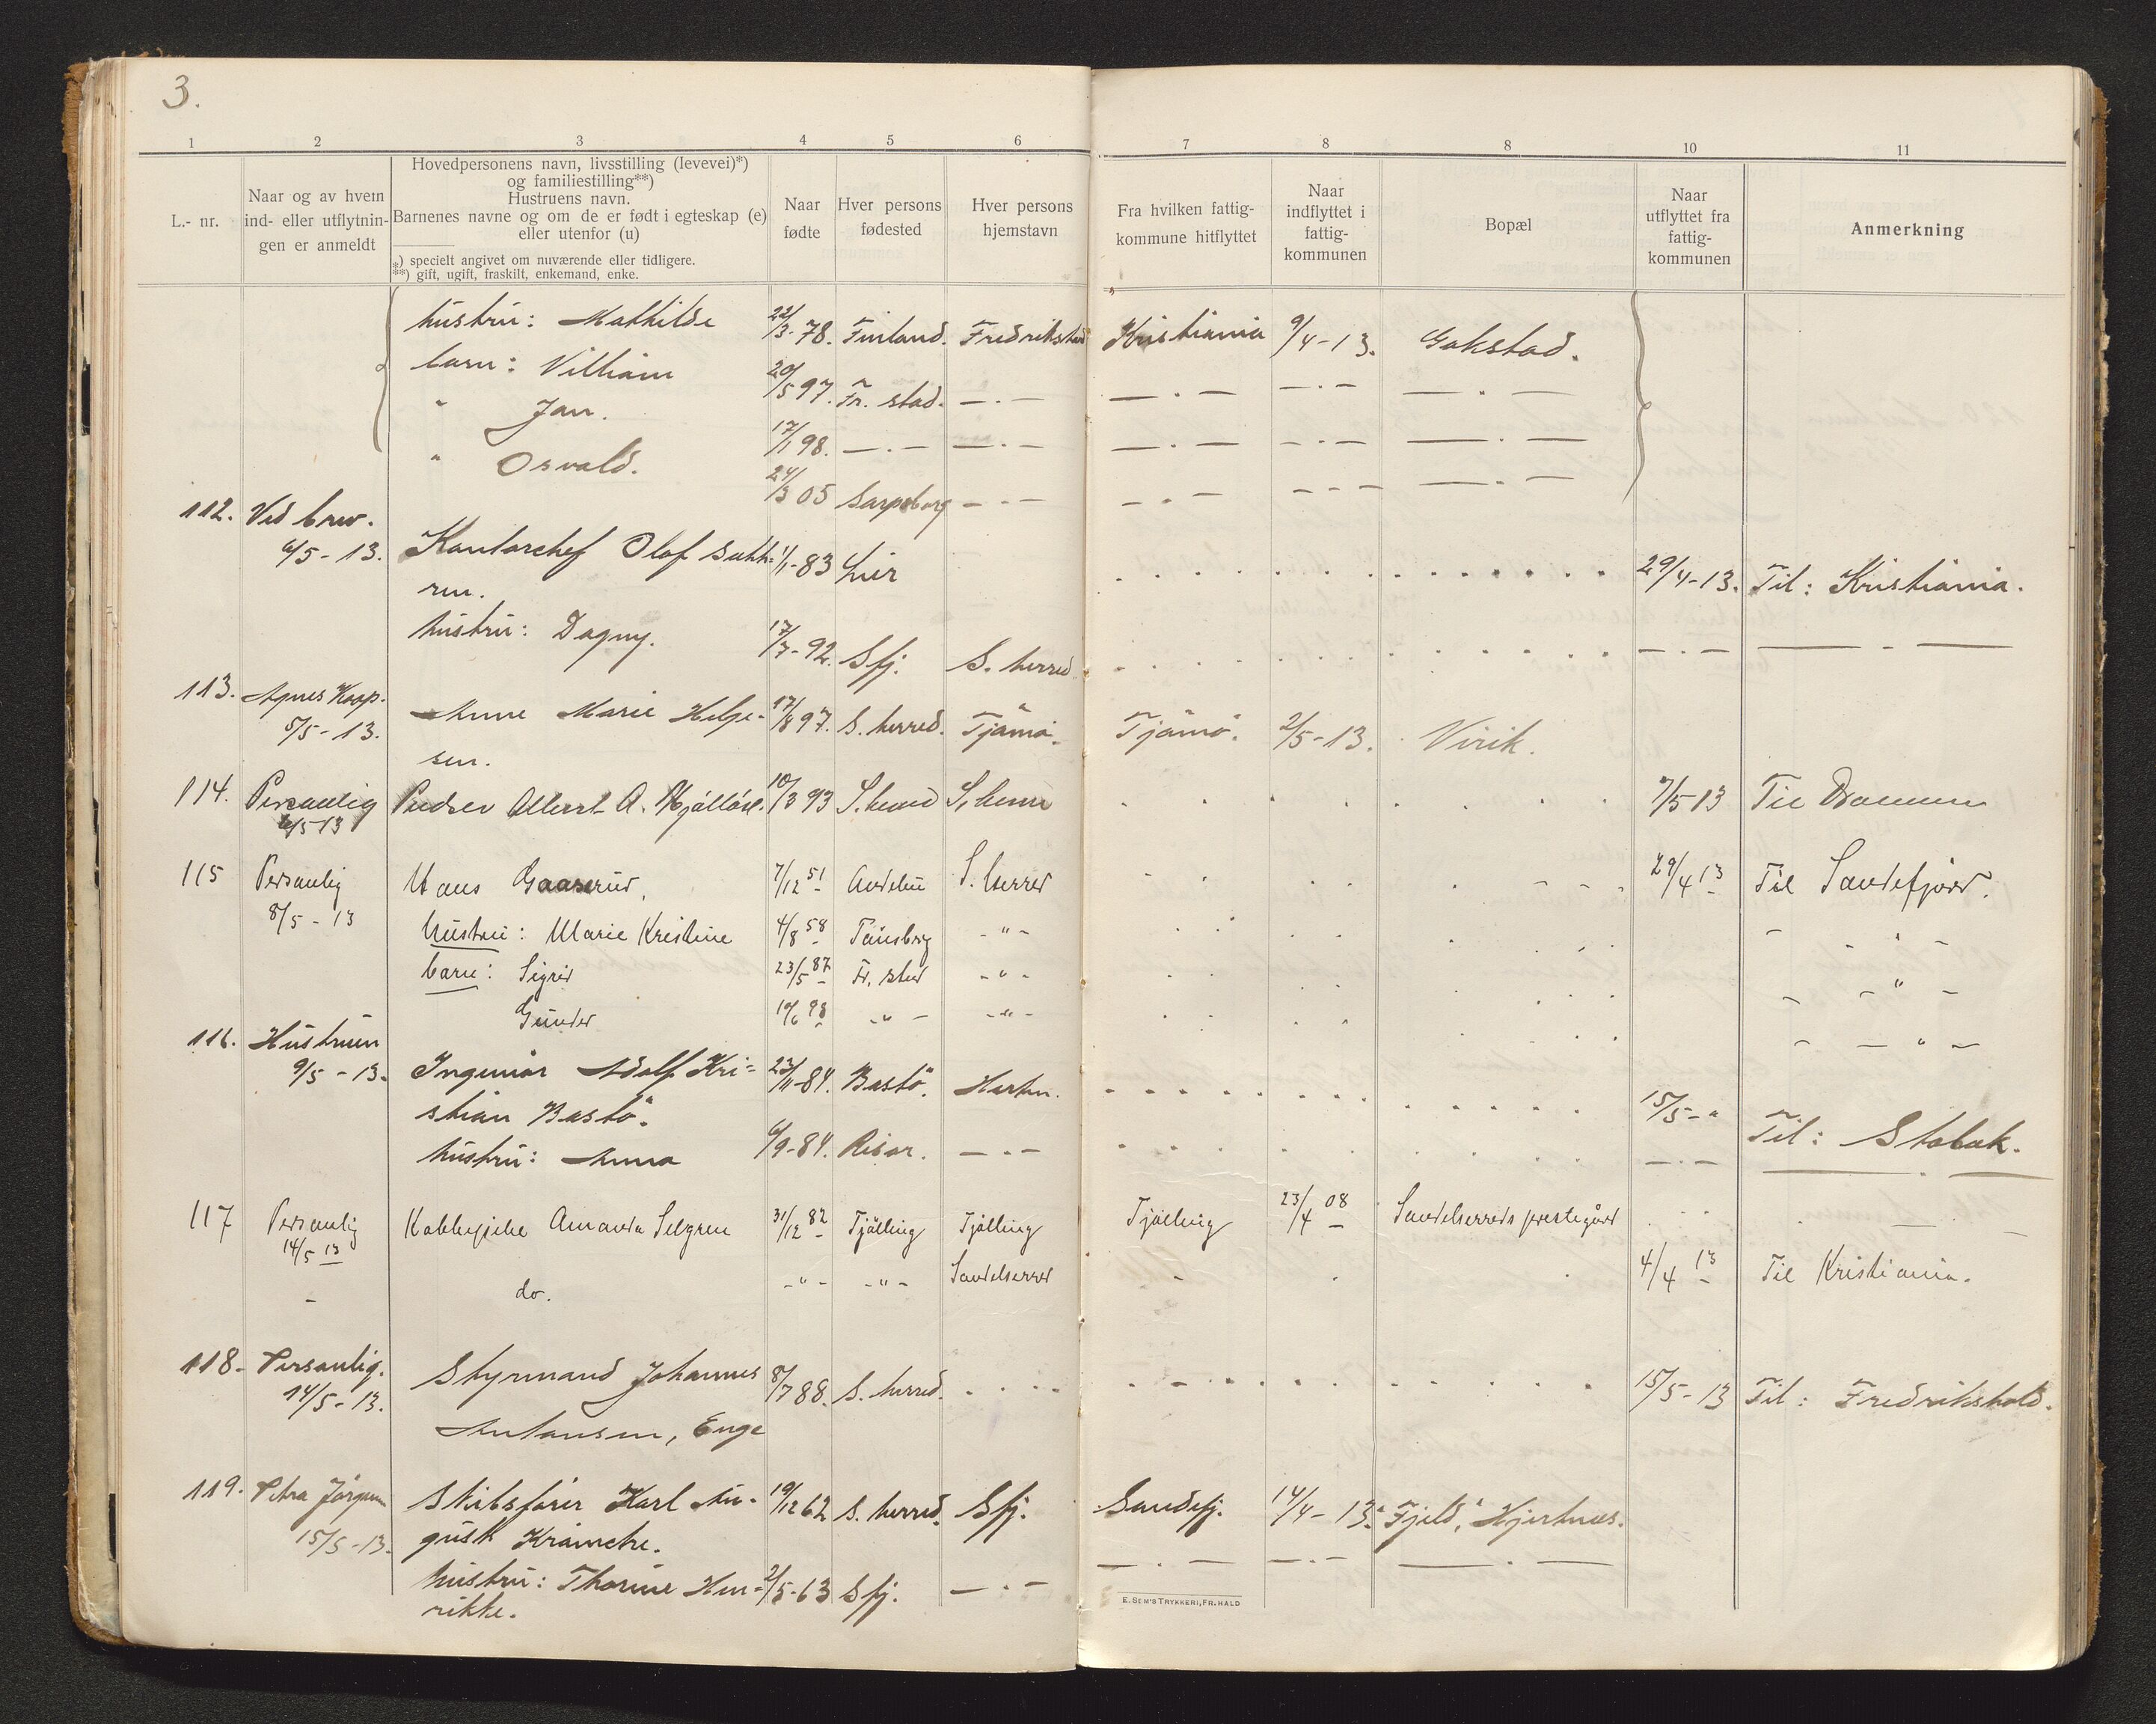 3.
1 2 3 4 5 6 7 8 8 10 11
L.- nr.
Naar og av hvem
ind- eller utflytnin-
gen er anmeldt
Hovedpersonens navn, livsstilling (levevei)*)
og familiestilling**)
Hustruens navn.
Barnenes navne og om de er født i egteskap (e)
eller utenfor (u)
*) specielt angivet om nuværende eller tidligere.
**) gift, ugift, fraskilt, enkemand, enke.
Naar
fødte
Hver persons
fødested
Hver persons
hjemstavn
Fra hvilken fattig-
kommune hitflyttet
Naar
indflyttet i
fattig-
kommunen
Bopæl
Naar
utflyttet fra
fattig-
kommunen
Anmerkning
hustru: Mathilde 22/3-78. Finland. Fredrikstad Kristiania 9/4-13. Gokstad.
barn: Villiam 20/5 97. Fr. stad. —·— —·— —·— —·—
" Jan. 17/1 98. —·— —·— —·— —·— —·—
" Osvald. 24/3 05 Sarpsborg —·— —·— —·— —·—
112. Ved brev. 6/5-13. Kontorchef Olof 1/1-83 Lier 29/4-13. Til: Kristiania.
hustru: Dagny. 17/7-92. Sfj. S. herred —·— —·—
113. Agnes 5/5-13. Anne Marie Helge- 17/8 97. S. herred. Tjømø. Tjømø. 2/5-13. Virik.
sen.
114. Personlig 6/5 13 A. 10/3 93 S. herred S. herre 7/5 13 Til Drammen
115 Personlig 8/5-13 Hans Gaaserud, 7/12 51 Andebu S. herred 29/4 13 Til Sandefjord.
hustru: Marie Kristine 4/8 58 Tønsberg -"- - " -
barn: Sigrid 23/5 87 Fr. stad -"- - " -
Gunder 10/6 98 -"- -"- - " -
116. Hustruen 9/5-13. Ingeniør Adolf Kri- 23/11-84. Bastø. Horten. 15/5-" Til: Stabæk.
stian Bastø.
hustru: Anna 6/9-84. Risør. —·— —·— —·—
117 Personlig 14/5 13 Kokkepike Amanda Selgren 31/12 82 Tjølling Tjølling Tjølling 23/4 08 Sandeherreds prestegård
- do. -"- -"- Sandeherred - 4/4 13 Til Kristiania.
118. Personlig. 14/5-13. Styrmand Johannes 8/7 88. S. herred. 15/5-13 Til: Fredrikshald.
Antonsen, Enge
119. Petra Jørgensen 15/5-13. Skibsfører Karl Au- 19/12 62 S. herred. Sfj. Sandefj. 14/4-13. "Fjeld", Hjertnes.
gust
hustru: Thorine Hen- 2/5-63 Sfj. —·— —·— —·— —·—
rikke.
E. SEM'S TRYKKERI, FR.HALD